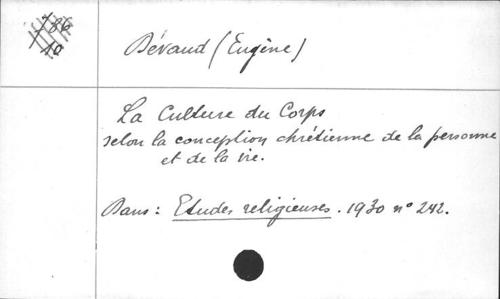 786
10
Béraud (Eugène)
La Culture du Corps
selon la conception chrétienne de la personne
et de la vie.
Dans : Etudes religieuses. 1930 n° 242.